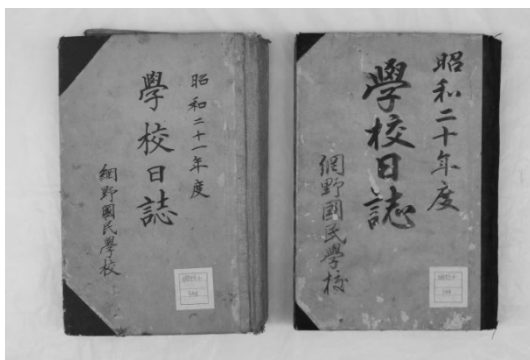 昭和二十一年度
學校日誌
網野國民學校
昭和二十年度
學校日誌
網野國民學校